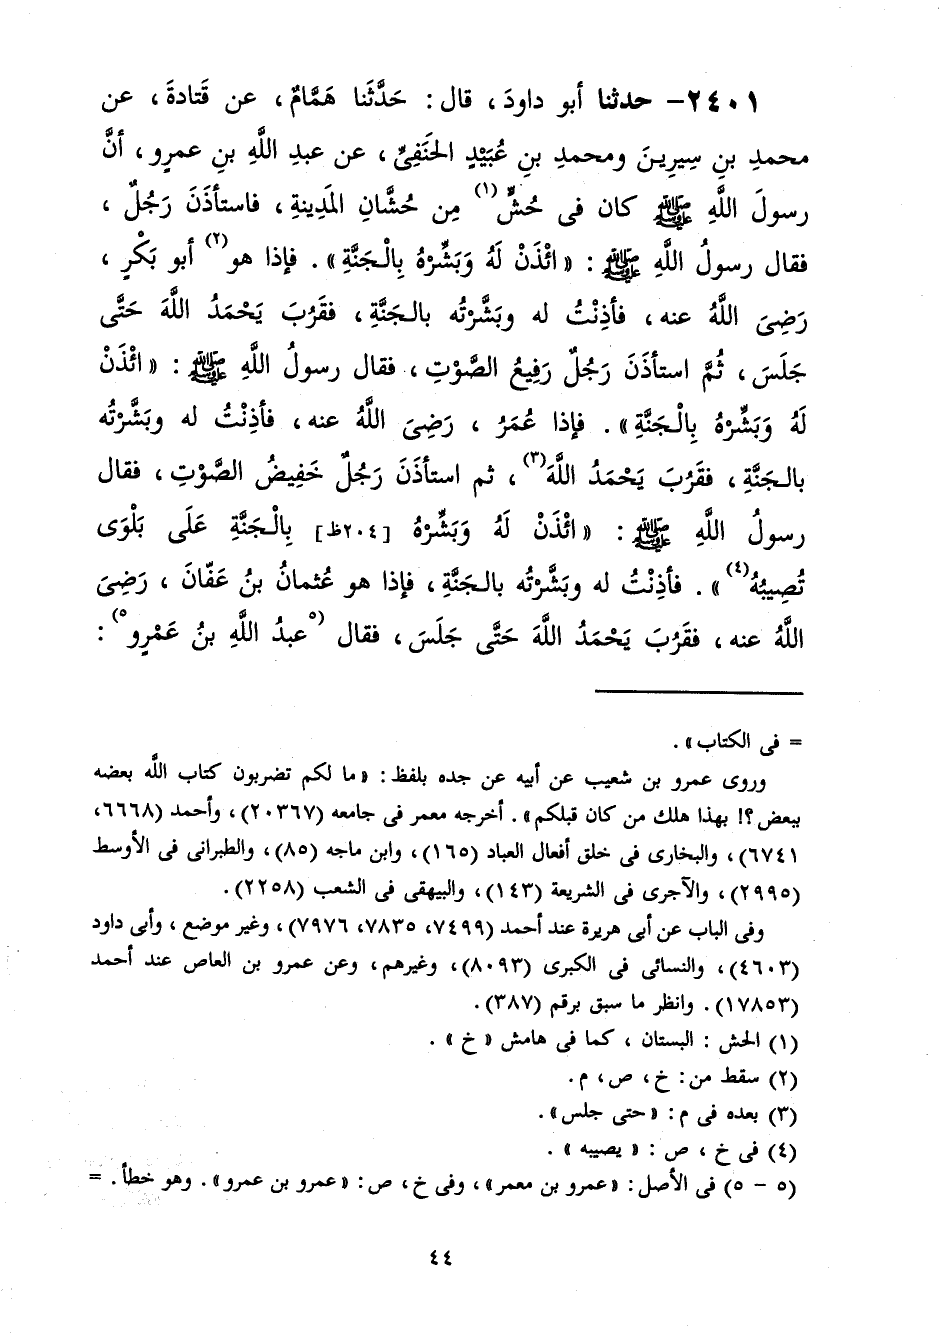 ٢٤٠١- حدثنا أبو داودَ، قال: حَدَّثَنا هَمَّامٌ، عن قَتادةَ، عن
محمدِ بنِ سِيرِينَ ومحمدِ بنِ عُبَيْدٍ الحَنَفِىِّ، عن عبدِ اللَّهِ بنِ عمرٍو، أنَّ
رسولَ اللَّهِ ﷺ كان فى حُشٍّ(١) مِن حُشَّانِ المَدِينةِ، فاستأذَنَ رَجُلٌ،
فقال رسولُ اللَّهِ ﷺ: «ائْذَنْ لَهُ وَبَشِّرْهُ بِالْجَنَّةِ». فإذا هو(٢) أبو بَكْرٍ،
رَضِىَ اللَّهُ عنه، فأذِنْتُ له وبَشَّرْتُه بالجَنَّةِ، فقَرُبَ يَحْمَدُ اللَّهَ حَتَّى
جلَسَ، ثُمَّ استأذَنَ رَجُلٌ رَفِيعُ الصَّوْتِ، فقال رسولُ اللَّهِ ﷺ: «ائْذَنْ
لَهُ وَبَشِّرْهُ بِالْجَنَّةِ». فإذا عُمَرُ، رَضِىَ اللَّهُ عنه، فأذِنْتُ له وبَشَّرْتُه
بالجَنَّةِ، فقَرُبَ يَحْمَدُ اللَّهَ(٣)، ثم استأذَنَ رَجُلٌ خَفِيضُ الصَّوْتِ، فقال
رسولُ اللَّهِ ﷺ: «ائْذَنْ لَهُ وَبَشِّرْهُ [٢٠٤ظ] بِالْجَنَّةِ عَلَى بَلْوَى
تُصِيبُهُ(٤)». فأذِنْتُ له وبَشَّرْتُه بالجَنَّةِ، فإذا هو عُثمانُ بنُ عَفّانَ، رَضِىَ
اللَّهُ عنه، فقَرُبَ يَحْمَدُ اللَّهَ حَتَّى جلَسَ، فقال (٥عبدُ اللَّهِ بنُ عَمْرٍو٥):
= فى الكتاب».
وروى عمرو بن شعيب عن أبيه عن جده بلفظ: «ما لكم تضربون كتاب اللَّه بعضه
ببعض؟! بهذا هلك من كان قبلكم». أخرجه معمر فى جامعه (٢٠٣٦٧)، وأحمد (٦٦٦٨،
٦٧٤١)، والبخارى فى خلق أفعال العباد (١٦٥)، وابن ماجه (٨٥)، والطبرانى فى الأوسط
(٢٩٩٥)، والآجرى فى الشريعة (١٤٣)، والبيهقى فى الشعب (٢٢٥٨).
وفى الباب عن أبى هريرة عند أحمد (٧٤٩٩، ٧٨٣٥، ٧٩٧٦)، وغير موضع، وأبى داود
(٤٦٠٣)، والنسائى فى الكبرى (٨٠٩٣)، وغيرهم، وعن عمرو بن العاص عند أحمد
(١٧٨٥٣). وانظر ما سبق برقم (٣٨٧).
(١) الحش: البستان، كما فى هامش «خ».
(٢) سقط من: خ، ص، م.
(٣) بعده فى م: «حتى جلس».
(٤) فى خ، ص: «يصيبه».
(٥ - ٥) فى الأصل: «عمرو بن معمر»، وفى خ، ص: «عمرو بن عمرو». وهو خطأ. =
٤٤